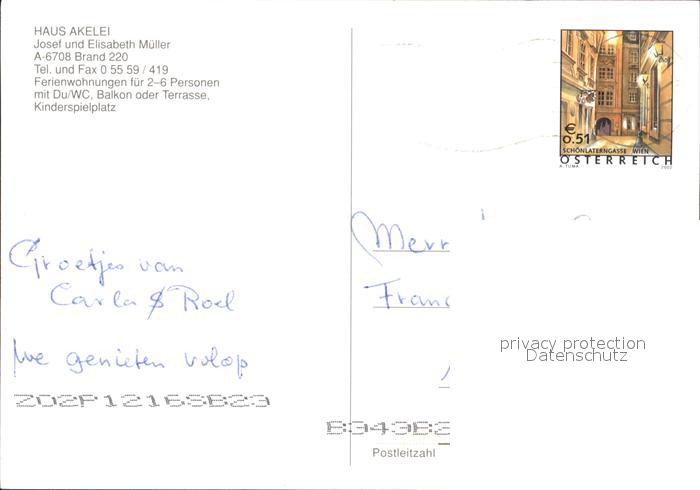 HAUS AKELEI
Josef und Elisabeth Müller
A-6708 Brand 220
Tel. und Fax 0 55 59 / 419
Ferienwohnungen für 2–6 Personen
mit Du/WC, Balkon oder Terrasse,
Kinderspielplatz
€
0.51
SCHÖNLATERNGASSE WIEN
ÖSTERREICH
A. TUMA 2002
Groetjes van
Carla & Roel
we genieten volop
ZO2P1216SB23
Merr
Franc
privacy protection
Datenschutz
B343B2
Postleitzahl